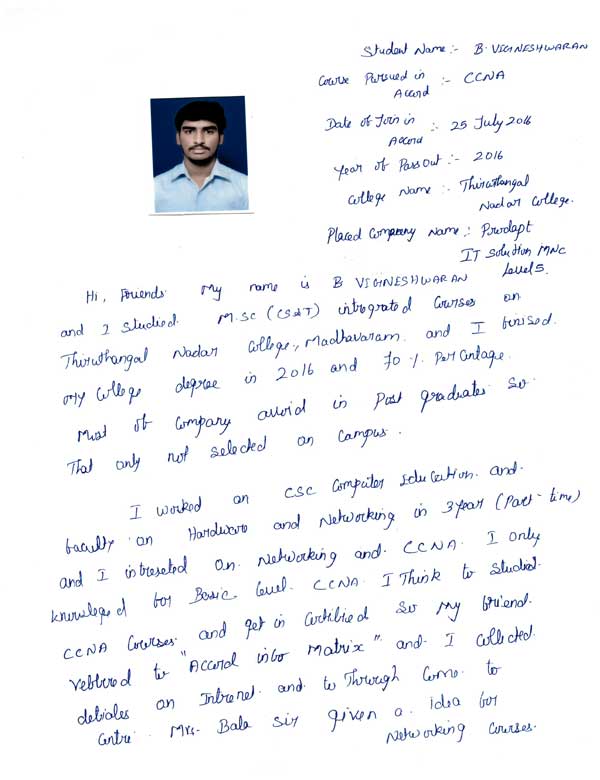 Student Name :- B. VIGINESHWARAN
Course Pursued in
Accord :- CCNA
Date of Join in
Accord :- 25 July 2016
Year of Pass Out :- 2016
College Name :- Thiruthangal
Nadar College.
Placed Company Name :-
IT Solution MNC
Level 5.
Hi, Friends My name is B VIGINESHWARAN
and I Studied M.SC (CS&IT) integrated Courses on
Thiruthangal Nadar College, Madhavaram. and I finised.
my College degree in 2016 and 70 % Percentage.
Most of Company avoid in Post graduates So
That only not Selected on Campus.
I worked on CSC Computer Education. and
faculty on Hardware and Networking in 3 year (Part-time)
and I intreseted on Networking and CCNA. I only
knowleged for Basic level CCNA. I Think to Studied
CCNA Courses and get in Certified So My friend
reffered to "Accord info Matrix" and I collected
detiales on Intrenet. and to Through Come to
Centre. Mrs. Bala Sir given a idea for
Networking Courses.